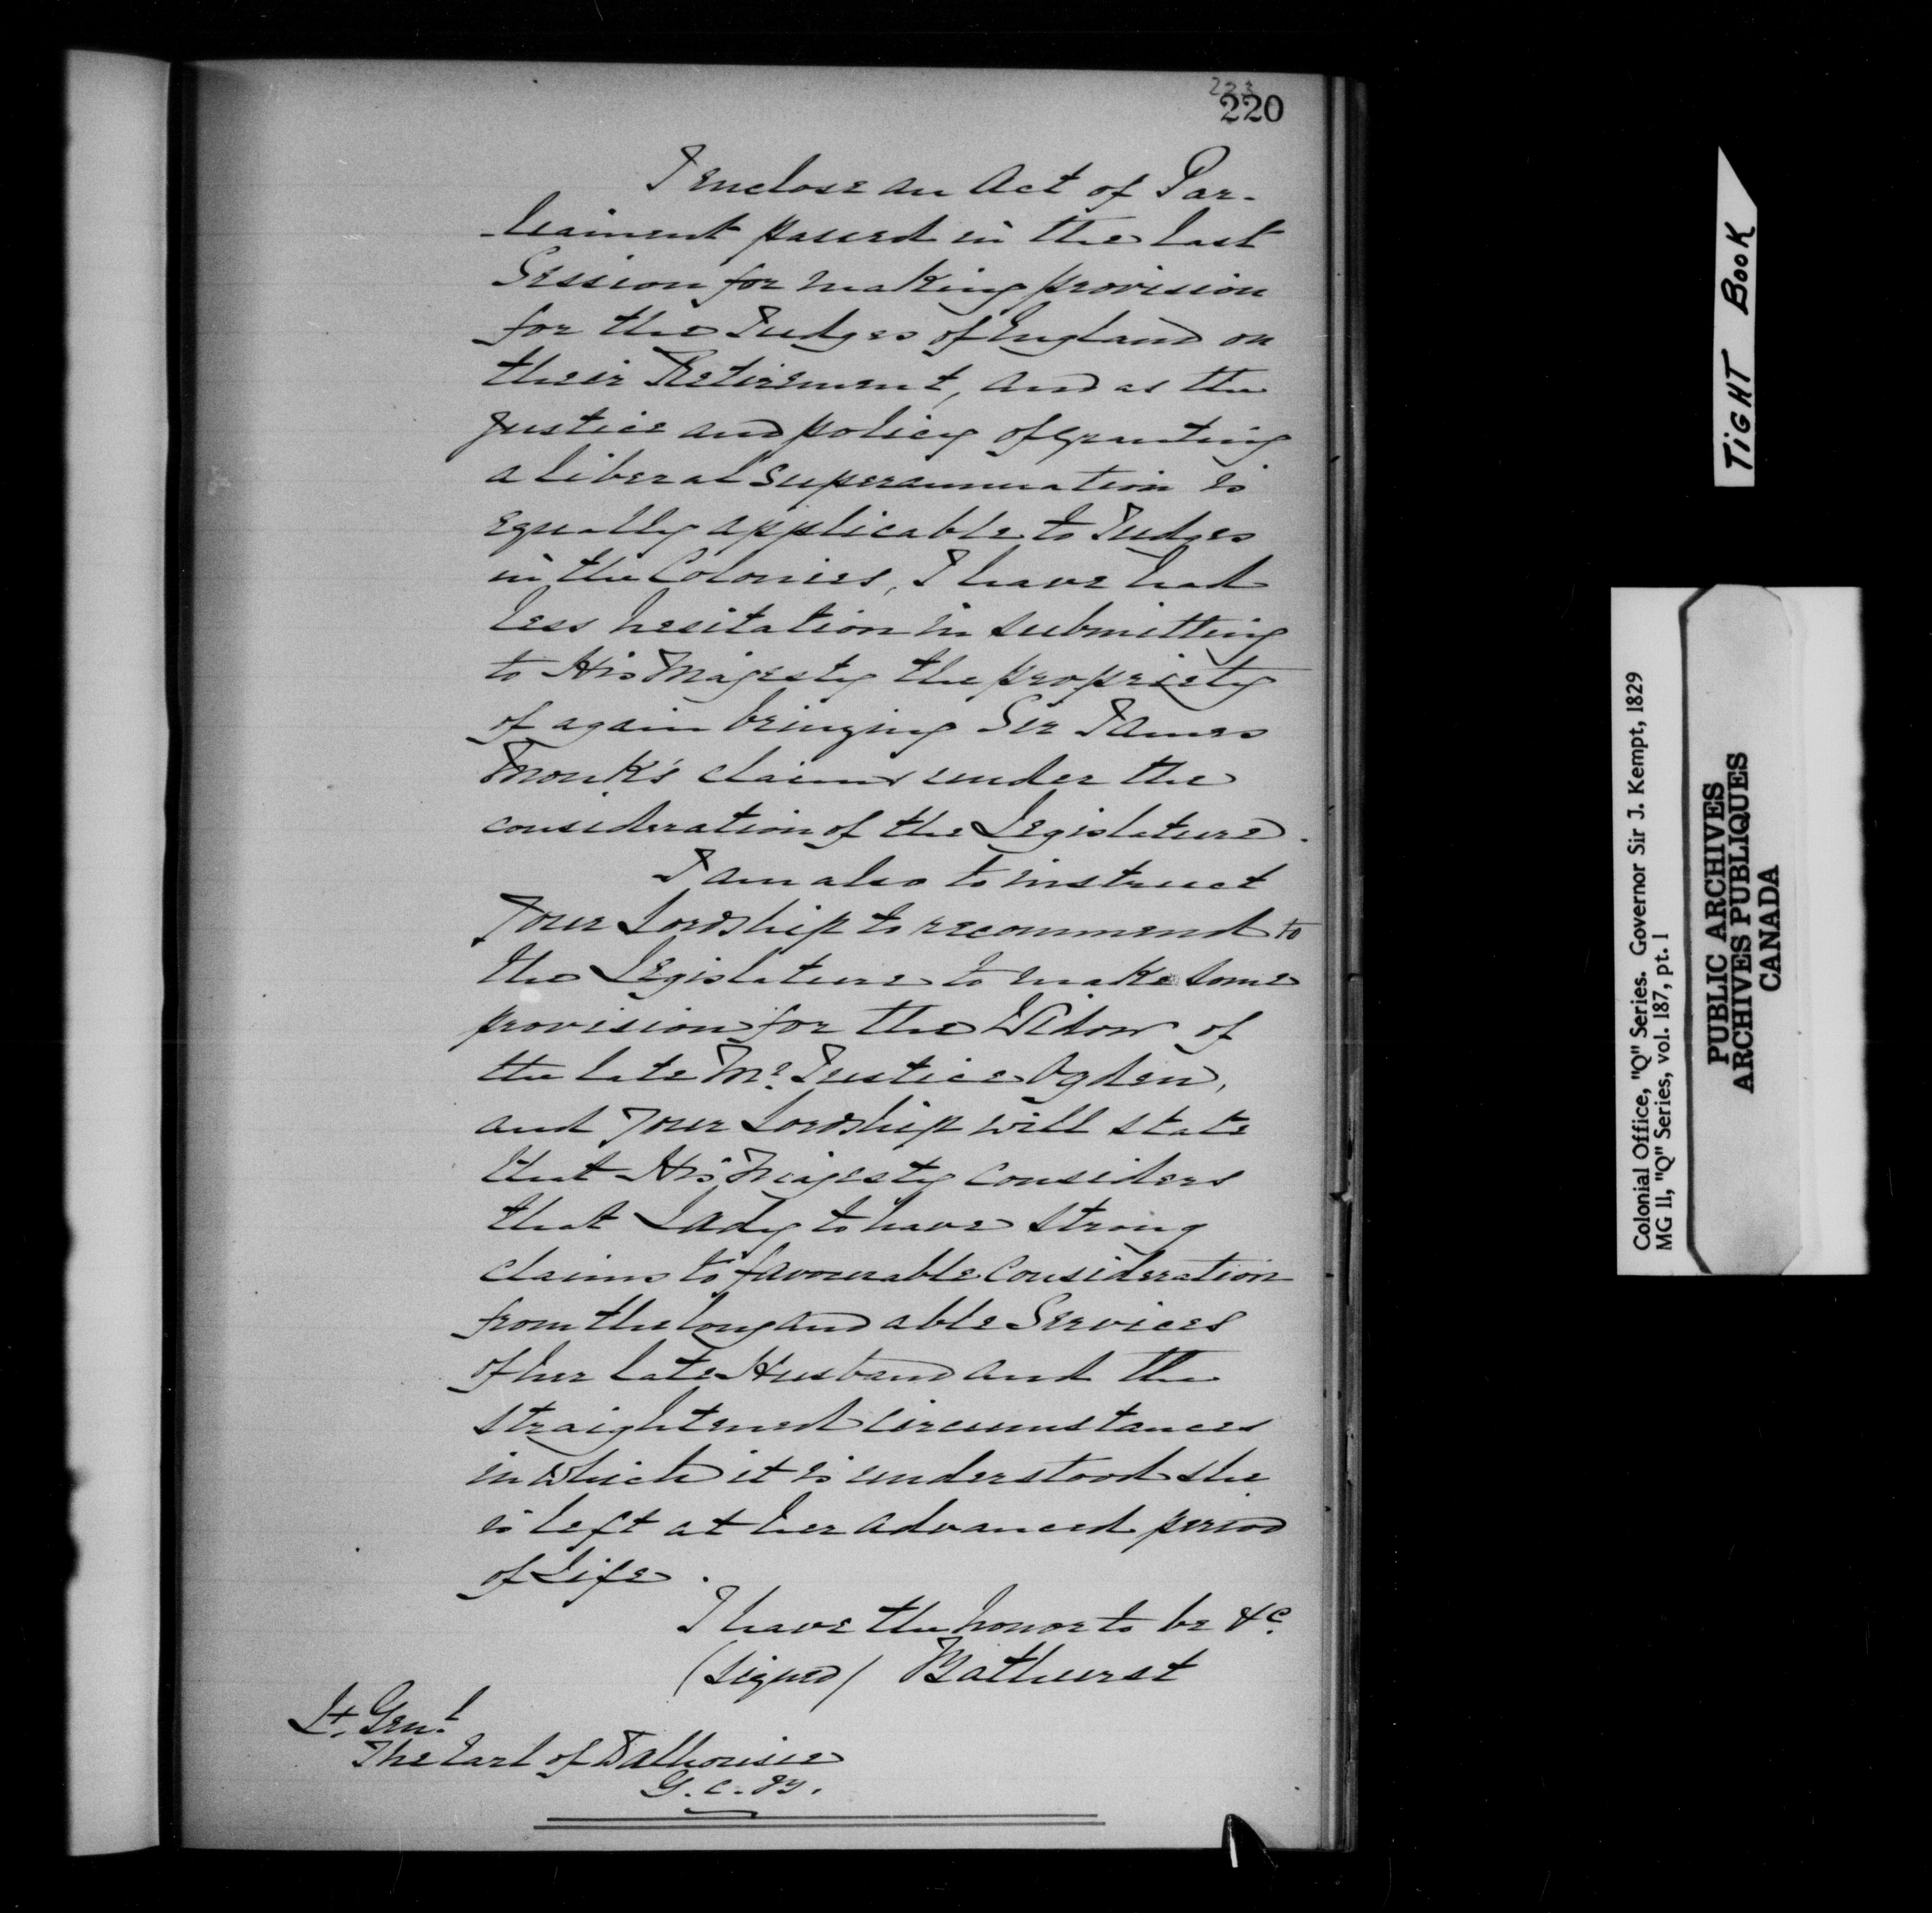 223
220
I enclose an Act of Par-
-liament passed in the last
Session for making provision
for the Judges of England on
their Retirement, and as the
justice and policy of granting
a liberal superannuation is
equally applicable to Judges
in the Colonies, I have had
less hesitation in submitting
to His Majesty the propriety
of again bringing Sir James
Monk's claims under the
consideration of the Legislature.
I am also to instruct
Your Lordship to recommend to
the Legislature to make some
provision for the Widow of
the late Mr. Justice Ogden,
and Your Lordship will state
that His Majesty considers
that Lady to have strong
claims to favourable consideration
from the long and able Services
of her late Husband and the
straightened circumstances
in which it is understood she
is left at her advanced period
of Life.
I have the honor to be &c.
(signed) Bathurst
Lt. Genl.
The Earl of Dalhousie
G.C.B.
TIGHT BOOK
Colonial Office, "Q" Series. Governor Sir J. Kempt, 1829
MG 11, "Q" Series, vol. 187, pt. 1
PUBLIC ARCHIVES
ARCHIVES PUBLIQUES
CANADA